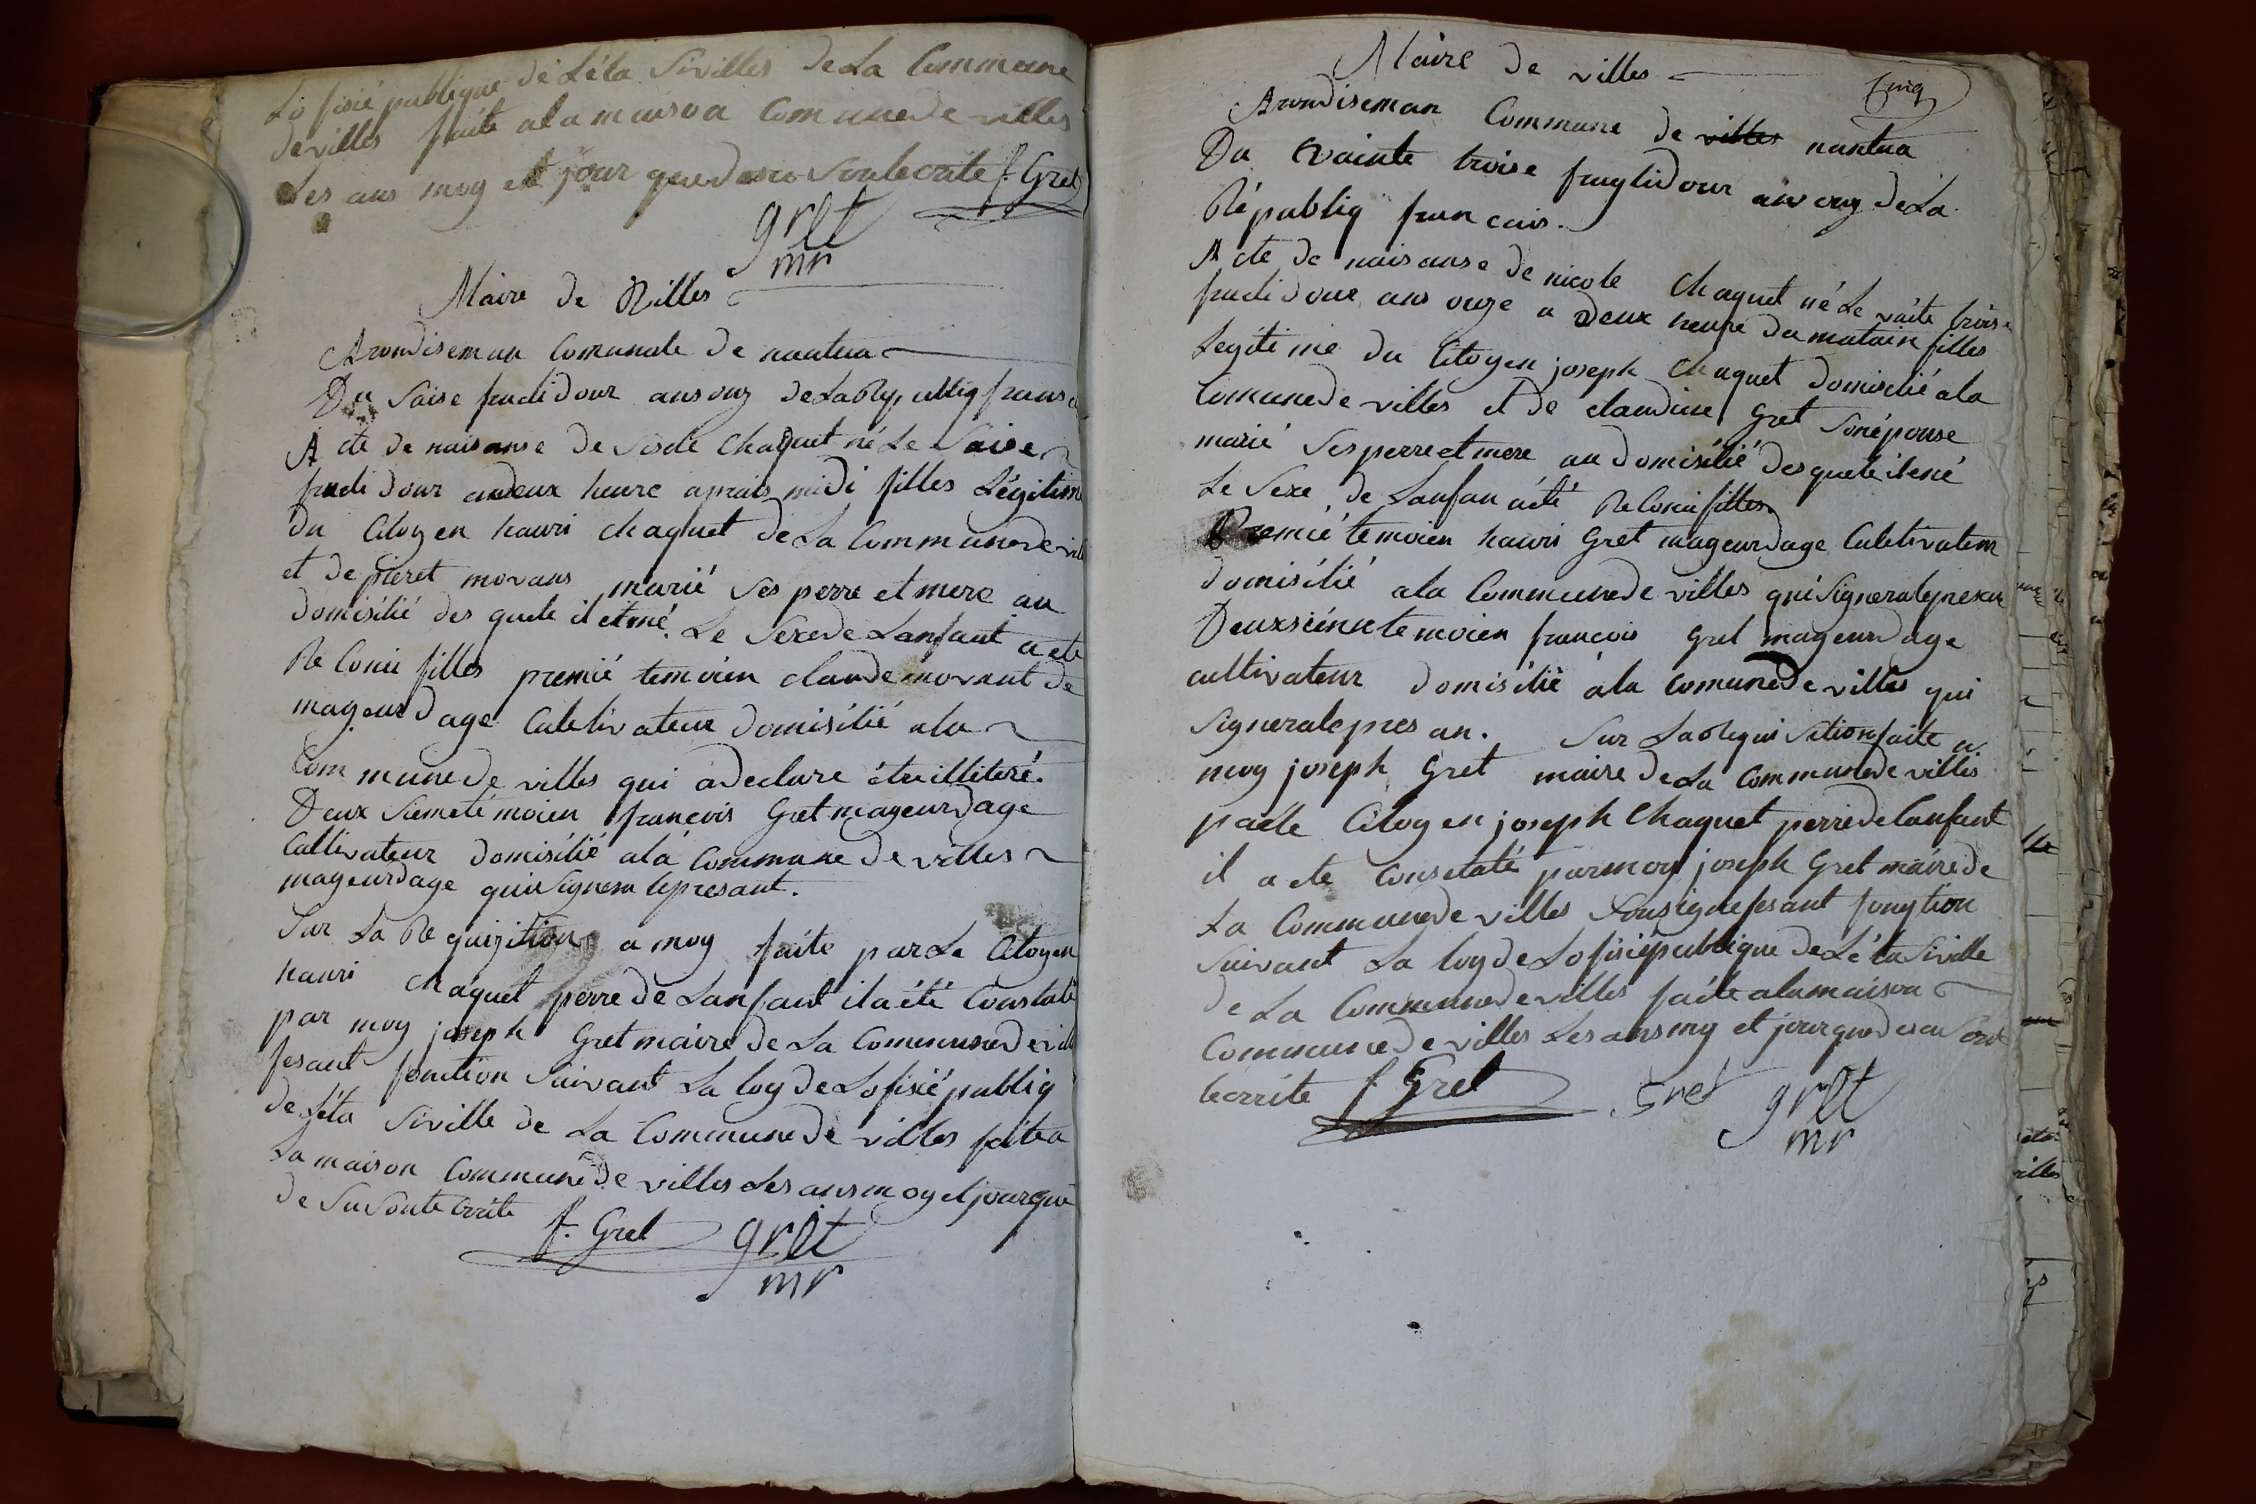 Lo fisié publique de Léta Sivilles de La Commune
de villes faite a la maison Comune de villes
Les ans moy et jour que desu Soule crite f. Gret
gret
mr
Maire de Villes
Arondiseman Comunale de nantua
Du Saise frucdidour ans onz de La Rypubliq frans
Acte de naisanse de Sisele Chaquet né Le Saise
frucdi dour a deux heure aprais midi filles Légitime
du Citoyen hanri chaquet de La Commune de vill
et de pieret morans marié Ses perre et mere au
domisilié des quele il etné. Le Sexe de Lanfant a ete
Re Conu filles premié temoien claude morant de
mageur dage Culetivateur domisilié a la
Commune de villes qui a declare être illiteré.
Deux Siemete moien francois Gret mageur dage
Cultivateur domisilié a la Commune de villes
mageurdage quie Signera le presant.
Sur La Requizition a moy faite par Le Citoyen
hanri Chaquet perre de Lanfant il a été Constaté
par moy joseph Gret maire de La Commune de vill
fesant fonction Suivant La loy de Lofisié publiq
de Léta Siville de La Commune de villes faite a
La maison Commune de villes Les ans moy et jour que
de Su Soute crite f. Gret gret
mr
Maire de villes
Cinq
Arondiseman Commune de villes nantua
Du vainte troise frugtidour an onz de La
Républiq francais.
Acte de naisanse de nicole Chaquet né Le vaite troise
frucdidour ans onze a deux heure du matain filles
Legitime du Citoyen joseph Chaquet domisilié a la
Comune de villes et de claudine Gret Son épouse
marié Ses perre et mere au domisilié des quele il ené
Le Sexe de Lanfan a été Re Conu filles.
Premié temoien hanri Gret mageurdage Culetivateur
domisilié a la Commune de villes qui Signera le presan
Deuxsieme temoien francois Gret mageur dage
cultivateur domisilié a la Comune de villes qui
Signera le pres an. Sur La Requi Sition faite a
moy joseph Gret maire de La Commune de villes
par le Citoyen joseph Chaquet perre de Lanfant
il a ete Consetaté par moy joseph Gret maire de
La Commune de villes Sousigné fesant fongtion
Suivant La loy de Lofisié publique de Léta Siville
de La Commune de villes faite a la maison
Commune de villes Les ans moy et jour que desu Sou
le crite f. Gret Gret gret
mr